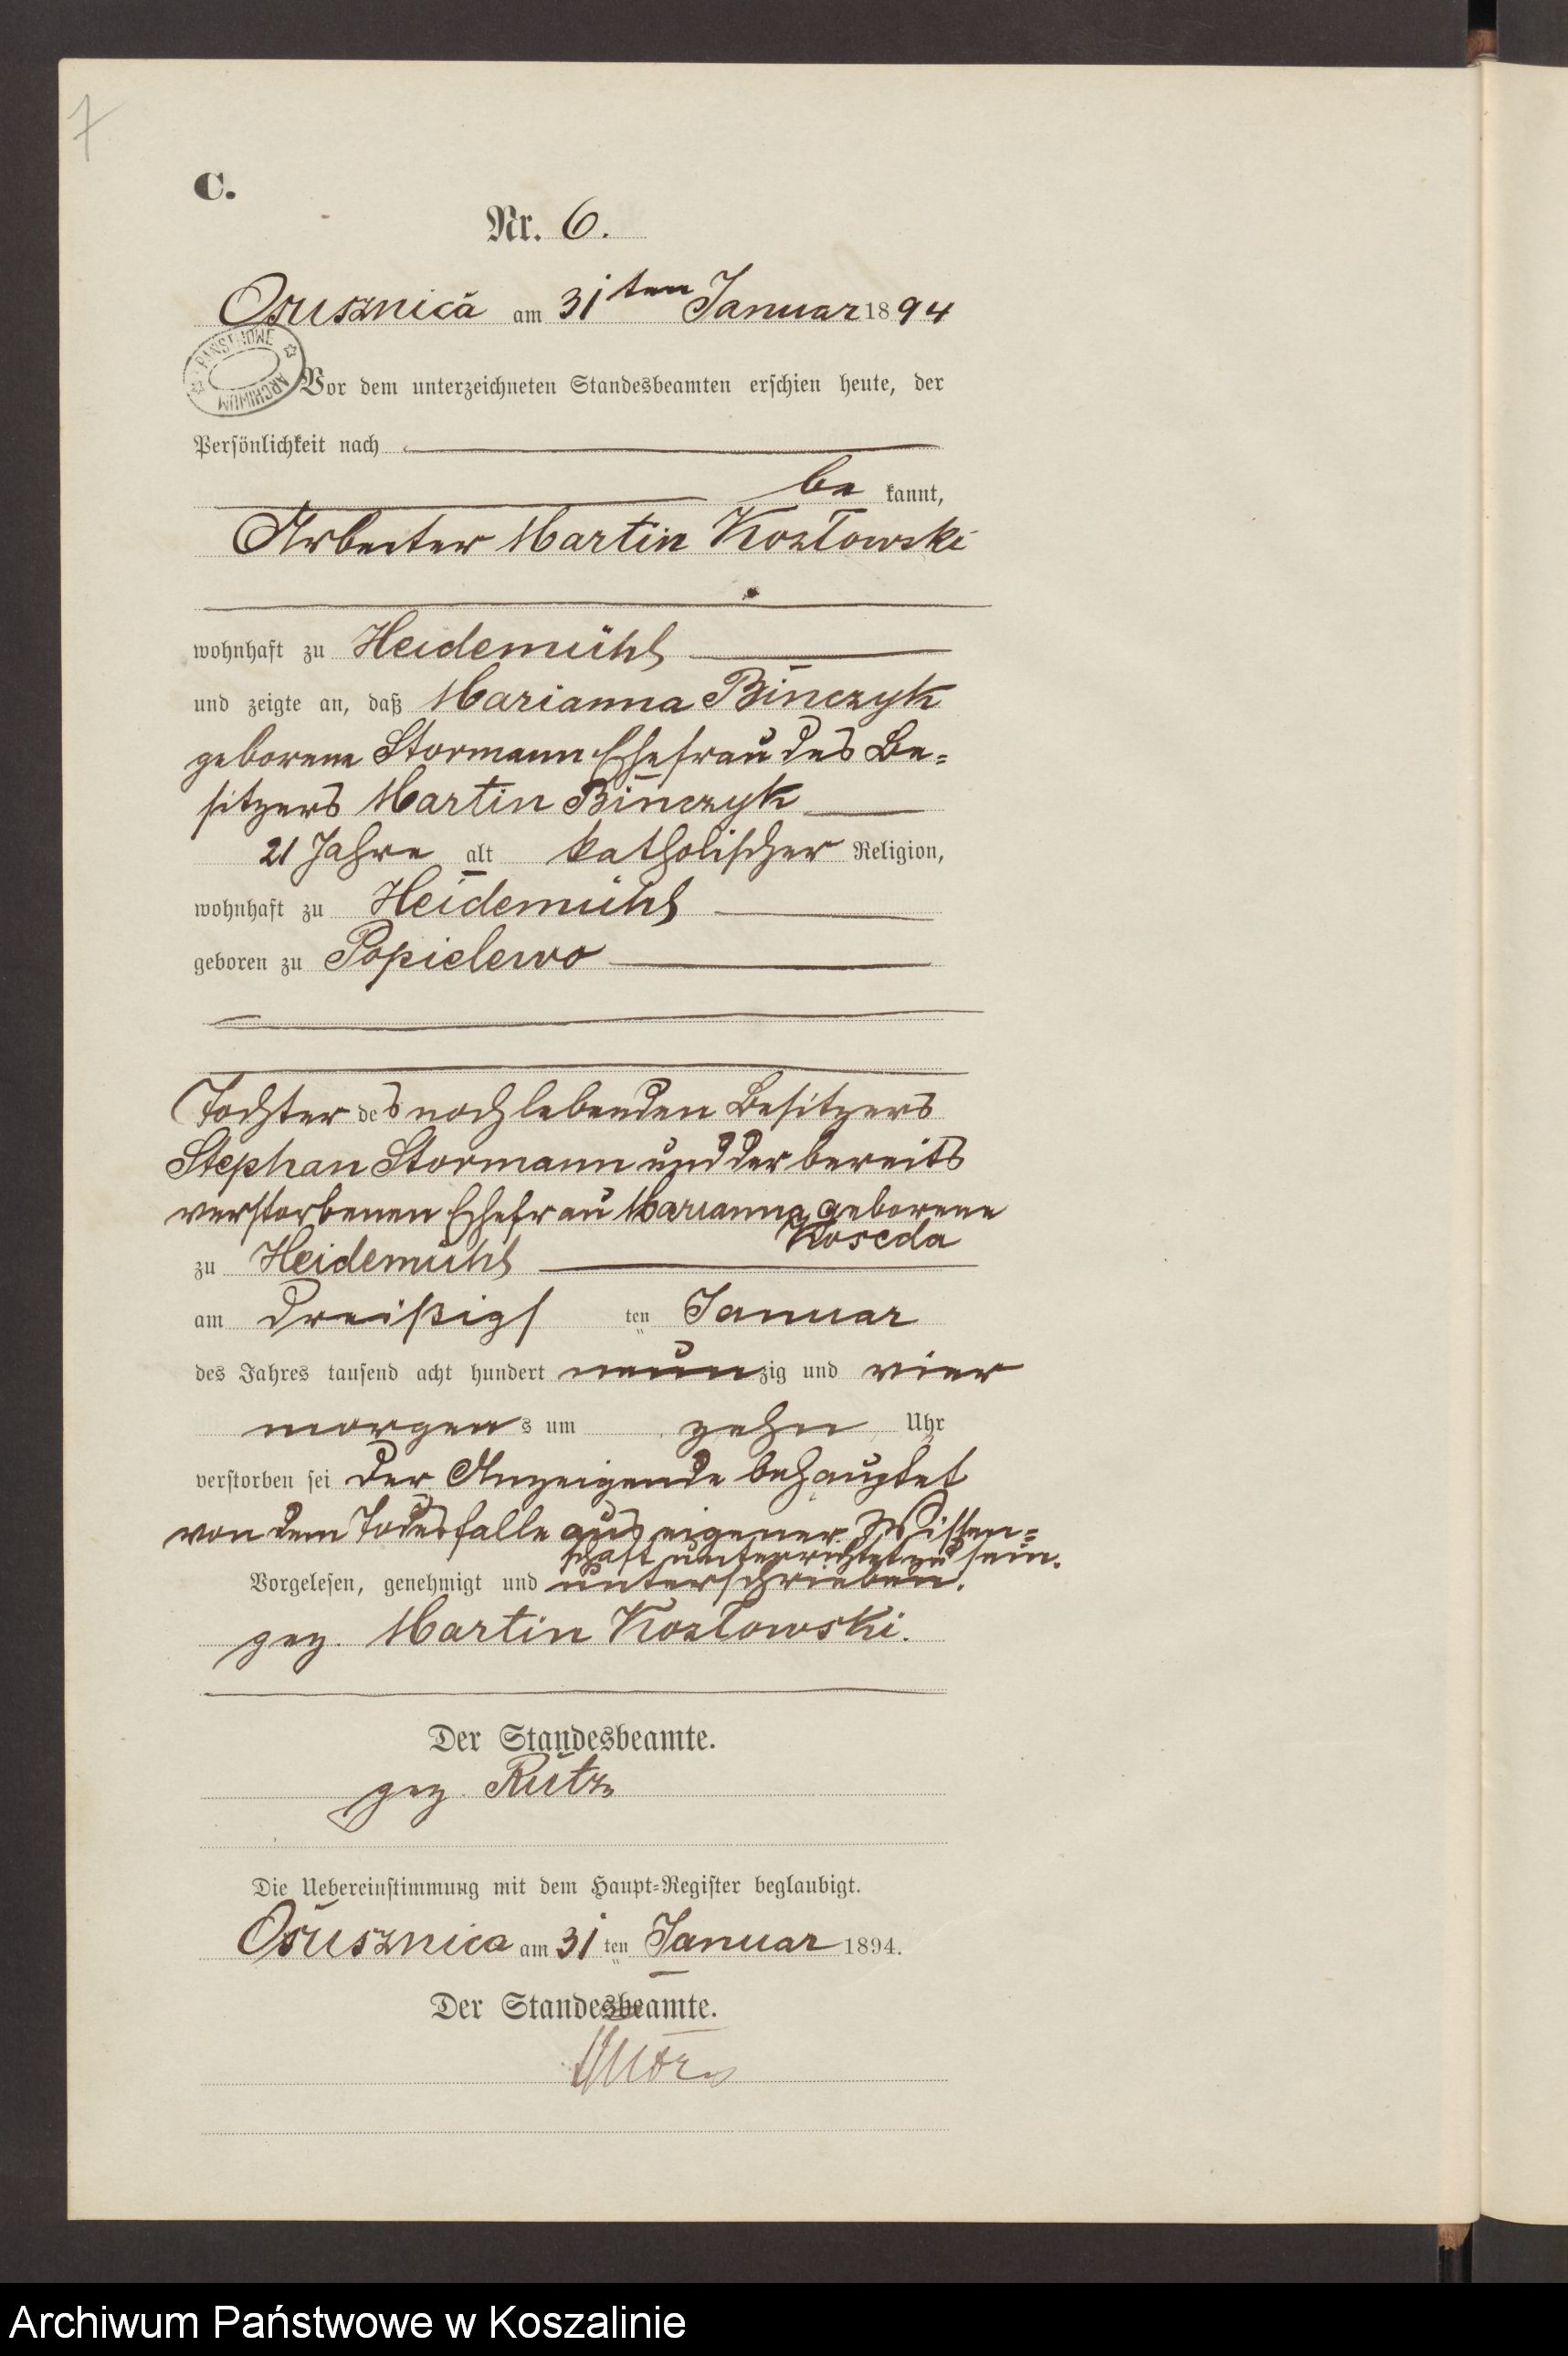 7
C.
Nr. 6.
Osusznica am 31ten Januar 1894
PAŃSTWOWE ARCHIWUM
Vor dem unterzeichneten Standesbeamten erschien heute, der
Persönlichkeit nach
be kannt,
Arbeiter Martin Kozłowski
wohnhaft zu Heidemühl
und zeigte an, daß Marianna Binczyk
geborene Stormann Ehefrau des Be=
sitzers Martin Binczyk
21 Jahre alt katholischer Religion,
wohnhaft zu Heidemühl
geboren zu Popielewo
Tochter des noch lebenden Besitzers
Stephan Stormann und der bereits
verstorbenen Ehefrau Marianna geborene
Koseda
zu Heidemühl
am dreißigs ten Januar
des Jahres tausend acht hundert neunzig und vier
morgens um zehn Uhr
verstorben sei der Anzeigende behauptet
von dem Todesfalle aus eigener Wissen=
schaft unterrichtet zu sein.
Vorgelesen, genehmigt und unterschrieben.
gez. Martin Kozłowski.
Der Standesbeamte.
gez. Rutz
Die Uebereinstimmung mit dem Haupt=Register beglaubigt.
Osusznica am 31 ten Januar 1894.
Der Standesbeamte.
Archiwum Państwowe w Koszalinie